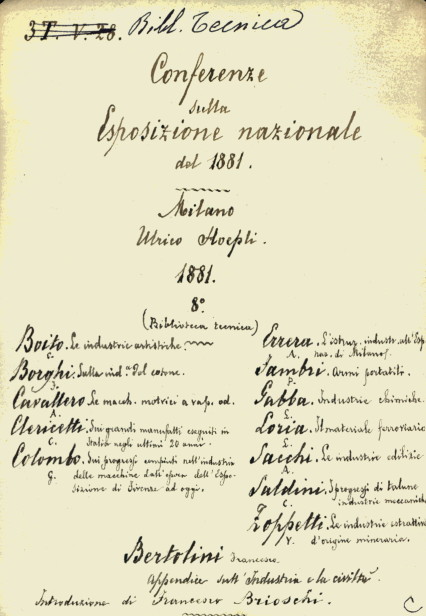 3 T. V. 28. Bibl. Tecnica
Conferenze
sulla
Esposizione nazionale
del 1881.
Milano
Ulrico Hoepli.
1881.
8º
(Biblioteca tecnica)
Boito. Le industrie artistiche.
C.
Borghi. Sulla ind.ª del cotone.
Cavallero. Le macch. motrici a vap. od.
A.
Clericetti. Sui grandi manufatti eseguiti in
C. Italia negli ultimi 20 anni.
Colombo. Sui progressi compiuti nell'industria
G. delle macchine dall'epoca dell'Espo-
sizione di Firenze ad oggi.
Errera. L'istruz. industr. all'Esp.
A. naz. di Milano.
Sambri. Armi portatili.
P.
Gabba. Industrie chimiche.
L.
Loria. Il materiale ferroviario
L.
Sacchi. Le industrie edilizie
A.
Saldini. I progressi di talune
C. industrie meccaniche
Zoppetti. Le industrie estrattive
V. d'origine mineraria.
Bertolini Francesco
Appendice sull'Industria e la civiltà.
Introduzione di Francesco Brioschi.
C